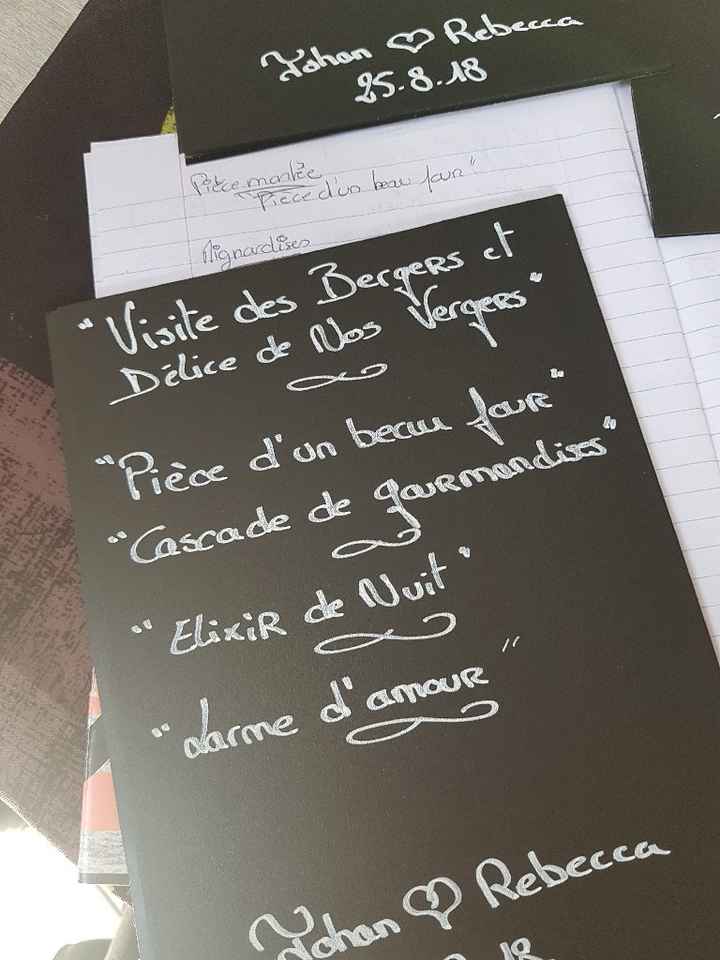 Yohan ♡ Rebecca
25.8.18
Pièce montée
"Pièce d'un beau jour"
Mignardises
"Visite des Bergers et
Délice de Nos Vergers"
"Pièce d'un beau jour"
"Cascade de gourmandises"
"Elixir de Nuit"
"Larme d'amour"
Yohan ♡ Rebecca